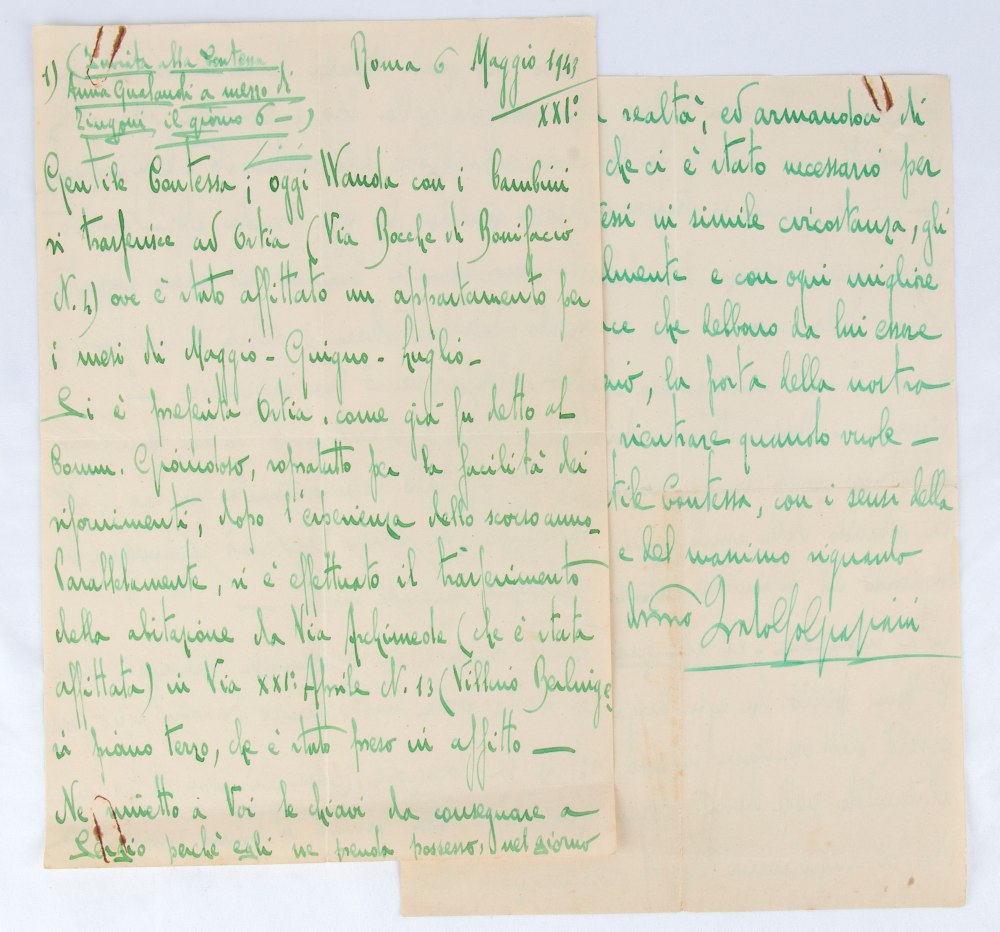 1) (Inviata alla Contessa
Anna Gualandi a mezzo di
Zingoni il giorno 6 - )
Roma 6 Maggio 1943
XXI°
Gentile Contessa; oggi Wanda con i bambini
si trasferisce ad Ostia (Via Bocche di Bonifacio
N. 4) ove è stato affittato un appartamento per
i mesi di Maggio - Guigno - Luglio -
Si è preferita Ostia, come già fu detto al
Comm. sopratutto per la facilità dei
rifornimenti, dopo l'esperienza dello scorso anno -
Parallelamente, si è effettuato il trasferimento
della abitazione da Via Archimede (che è stata
affittata) in Via XXI° Aprile N. 13 (Villino
piano terzo, che è stato preso in affitto —
Ne rimetto a Voi le chiavi da consegnare a
Sergio perchè egli ne prenda possesso, nel giorno
realtà, ed armandoci di
che ci è stato necessario per
essi in simile circostanza, gli
lmente e con ogni migliore
ace che debbono da lui essere
la porta della nostra
rientrare quando vuole —
tile Contessa, con i sensi della
e del massimo riguardo